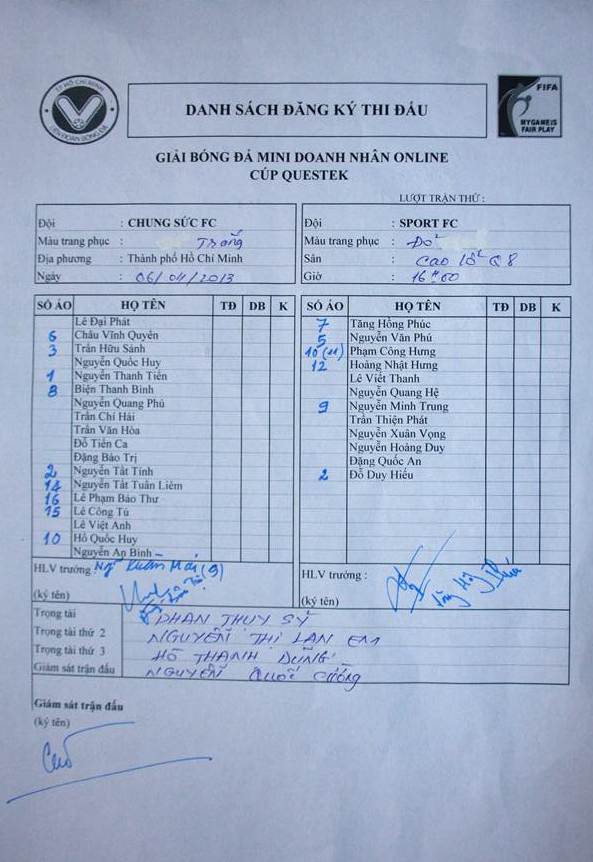 TP HỒ CHÍ MINH
LIÊN ĐOÀN BÓNG ĐÁ
DANH SÁCH ĐĂNG KÝ THI ĐẤU
FIFA
MY GAME IS
FAIR PLAY
GIẢI BÓNG ĐÁ MINI DOANH NHÂN ONLINE
CÚP QUESTEK
LƯỢT TRẬN THỨ :
Đội : CHUNG SỨC FC
Màu trang phục : Trắng
Địa phương : Thành phố Hồ Chí Minh
Ngày : 06/04/2013
Đội : SPORT FC
Màu trang phục : Đỏ
Sân : Cao lỗ Q8
Giờ : 16H00
SỐ ÁO HỌ TÊN TĐ DB K
Lê Đại Phát
6 Châu Vĩnh Quyền
3 Trần Hữu Sánh
Nguyễn Quốc Huy
1 Nguyễn Thanh Tiến
8 Biện Thanh Bình
Nguyễn Quang Phú
Trần Chí Hải
Trần Văn Hòa
Đỗ Tiến Ca
Đặng Bảo Trị
2 Nguyễn Tất Tính
14 Nguyễn Tất Tuấn Liêm
16 Lê Phạm Bảo Thư
15 Lê Công Tú
Lê Việt Anh
10 Hồ Quốc Huy
Nguyễn An Bình
SỐ ÁO HỌ TÊN TĐ DB K
7 Tăng Hồng Phúc
5 Nguyễn Văn Phú
10 (11) Phạm Công Hưng
12 Hoàng Nhật Hưng
Lê Viết Thanh
Nguyễn Quang Hệ
9 Nguyễn Minh Trung
Trần Thiện Phát
Nguyễn Xuân Vọng
Nguyễn Hoàng Duy
Đặng Quốc An
2 Đỗ Duy Hiếu
HLV trưởng: Ngô Xuân Mai (9)
(ký tên)
HLV trưởng :
(ký tên)
Trọng tài PHAN THUY SỸ
Trọng tài thứ 2 NGUYỄN THỊ LAN EM
Trọng tài thứ 3 HỒ THANH DŨNG
Giám sát trận đấu NGUYỄN QUỐC CƯỜNG
Giám sát trận đấu
(ký tên)